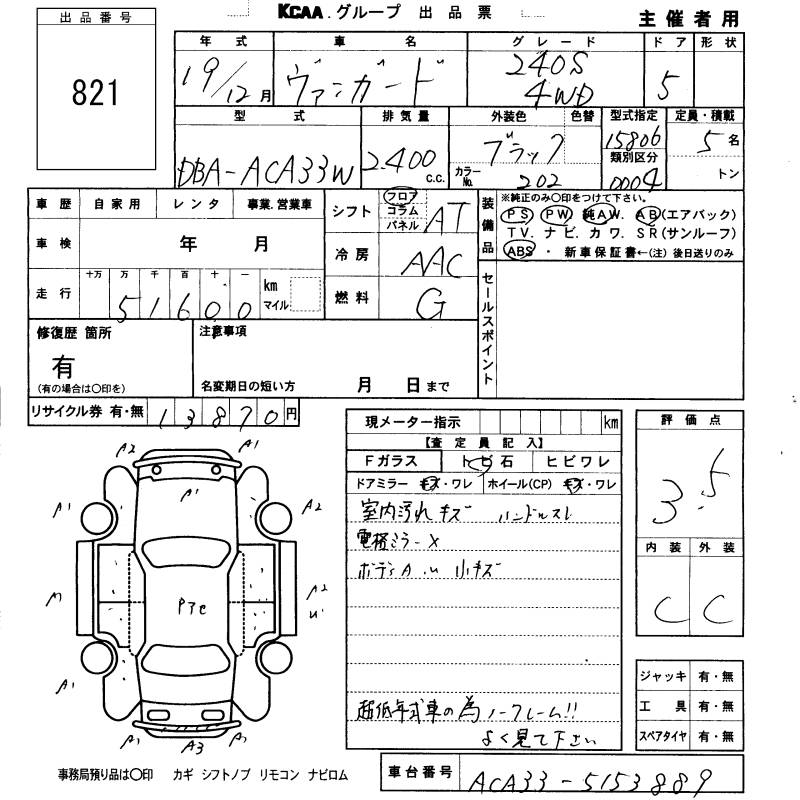 KCAA.グループ 出品票
主催者用
出品番号
821
年式 車名 グレード ドア 形状
19/12月 ヴァンガード 240S 4WD 5
型式 排気量 外装色 色替 型式指定 定員・積載
DBA-ACA33W 2.400 c.c. ブラック カラーNo. 202 15806 類別区分 0004 5名 トン
車歴 自家用 レンタ 事業.営業車
車検 年 月
走行 十万 万 千 百 十 一 km マイル
5 1 6 0 0
シフト フロア コラム パネル AT
冷房 AAC
燃料 G
装備品 ※純正のみ○印をつけて下さい。
PS PW 純AW. AB(エアバック)
TV. ナビ. カワ. SR(サンルーフ)
ABS ・ 新車保証書←(注) 後日送りのみ
セールスポイント
修復歴 箇所
有
(有の場合は○印を)
注意事項
名変期日の短い方 月 日まで
リサイクル券 有・無 13870円
現メーター指示 km
【査定員記入】
Fガラス トビ石 ヒビワレ
ドアミラー キズ・ワレ ホイール(CP) キズ・ワレ
室内汚れ キズ ハンドルスレ
電格ミラー×
ボディA.u 小キズ
超低年式車の為ノークレーム!!
よく見て下さい
評価点
3.5
内装 外装
C C
ジャッキ 有・無
工具 有・無
スペアタイヤ 有・無
A2 A1
A1 A1 A2
A2
P7e
A1
A1 A3 A1
事務局預り品は○印 カギ シフトノブ リモコン ナビロム
車台番号 ACA33-5153889